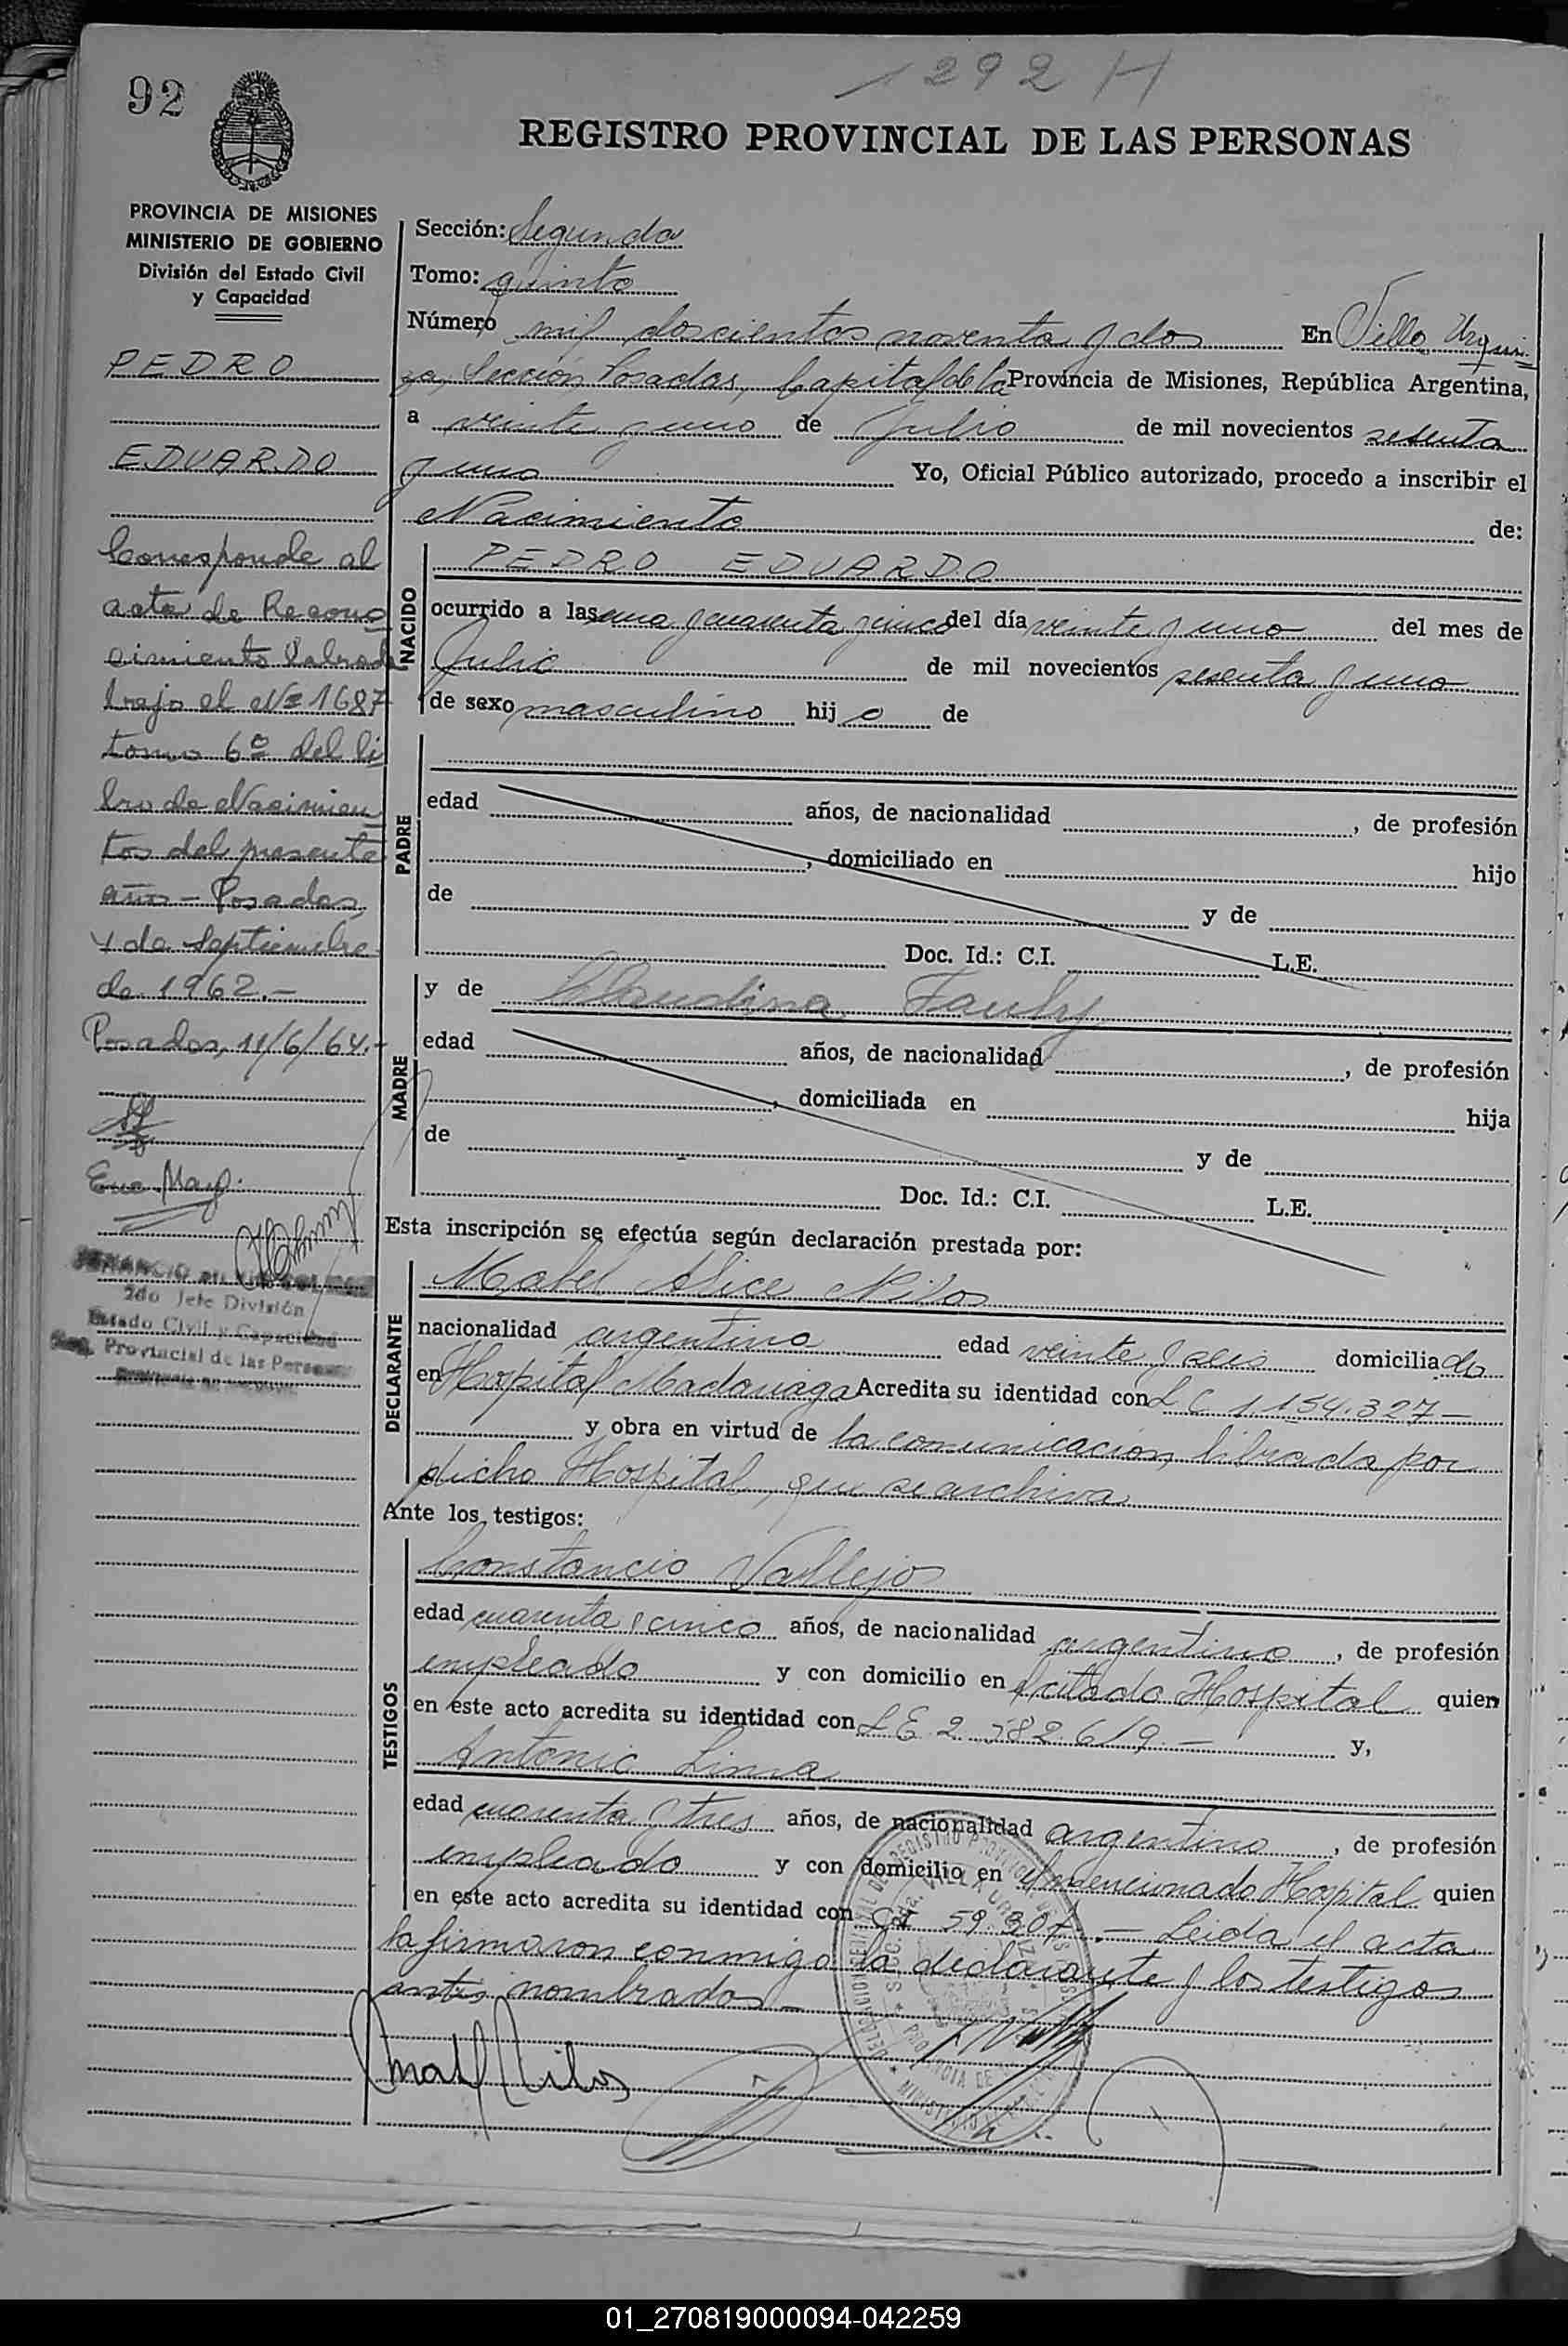 92
1292 H
REGISTRO PROVINCIAL DE LAS PERSONAS
PROVINCIA DE MISIONES
MINISTERIO DE GOBIERNO
División del Estado Civil
y Capacidad
PEDRO
EDUARDO
Corresponde al
acta de Recono
cimiento labrada
bajo el Nº 1687
tomo 6º del li
bro de Nacimien
tos del presente
año - Posadas,
4 de Septiembre
de 1962.-
Posadas, 11/6/64.-
2do Jefe División
Estado Civil y Capacidad
Reg. Provincial de las Personas
Sección: Segunda
Tomo: quinto
Número mil doscientos noventa y dos En Villa Urqui
za, Sección Posadas, Capital de la Provincia de Misiones, República Argentina,
a veinte y uno de Julio de mil novecientos sesenta
y uno Yo, Oficial Público autorizado, procedo a inscribir el
Nacimiento de:
NACIDO
PEDRO EDUARDO
ocurrido a las una y cuarenta y cinco del día veinte y uno del mes de
Julio de mil novecientos sesenta y uno
de sexo masculino hijo de
PADRE
edad años, de nacionalidad , de profesión
, domiciliado en hijo
de y de
Doc. Id.: C.I. L.E.
MADRE
y de Claudina Fauly
edad años, de nacionalidad , de profesión
, domiciliada en hija
de y de
Doc. Id.: C.I. L.E.
Esta inscripción se efectúa según declaración prestada por:
DECLARANTE
Mabel Alice Nilos
nacionalidad argentina edad veinte y seis domiciliada
en Hospital Madariaga Acredita su identidad con L C 1.154.327 -
y obra en virtud de la comunicación librada por
dicho Hospital, que se archiva
Ante los testigos:
TESTIGOS
Constancio Vallejos
edad cuarenta y cinco años, de nacionalidad argentino , de profesión
empleado y con domicilio en citado Hospital quien
en este acto acredita su identidad con L E 2.582.619.- y,
Antonio Lima
edad cuarenta y tres años, de nacionalidad argentino , de profesión
empleado y con domicilio en mencionado Hospital quien
en este acto acredita su identidad con CI 59.307.- Leida el acta
la firmaron conmigo la declarante y los testigos
antes nombrados -
Mabel Nilos
01_270819000094-042259